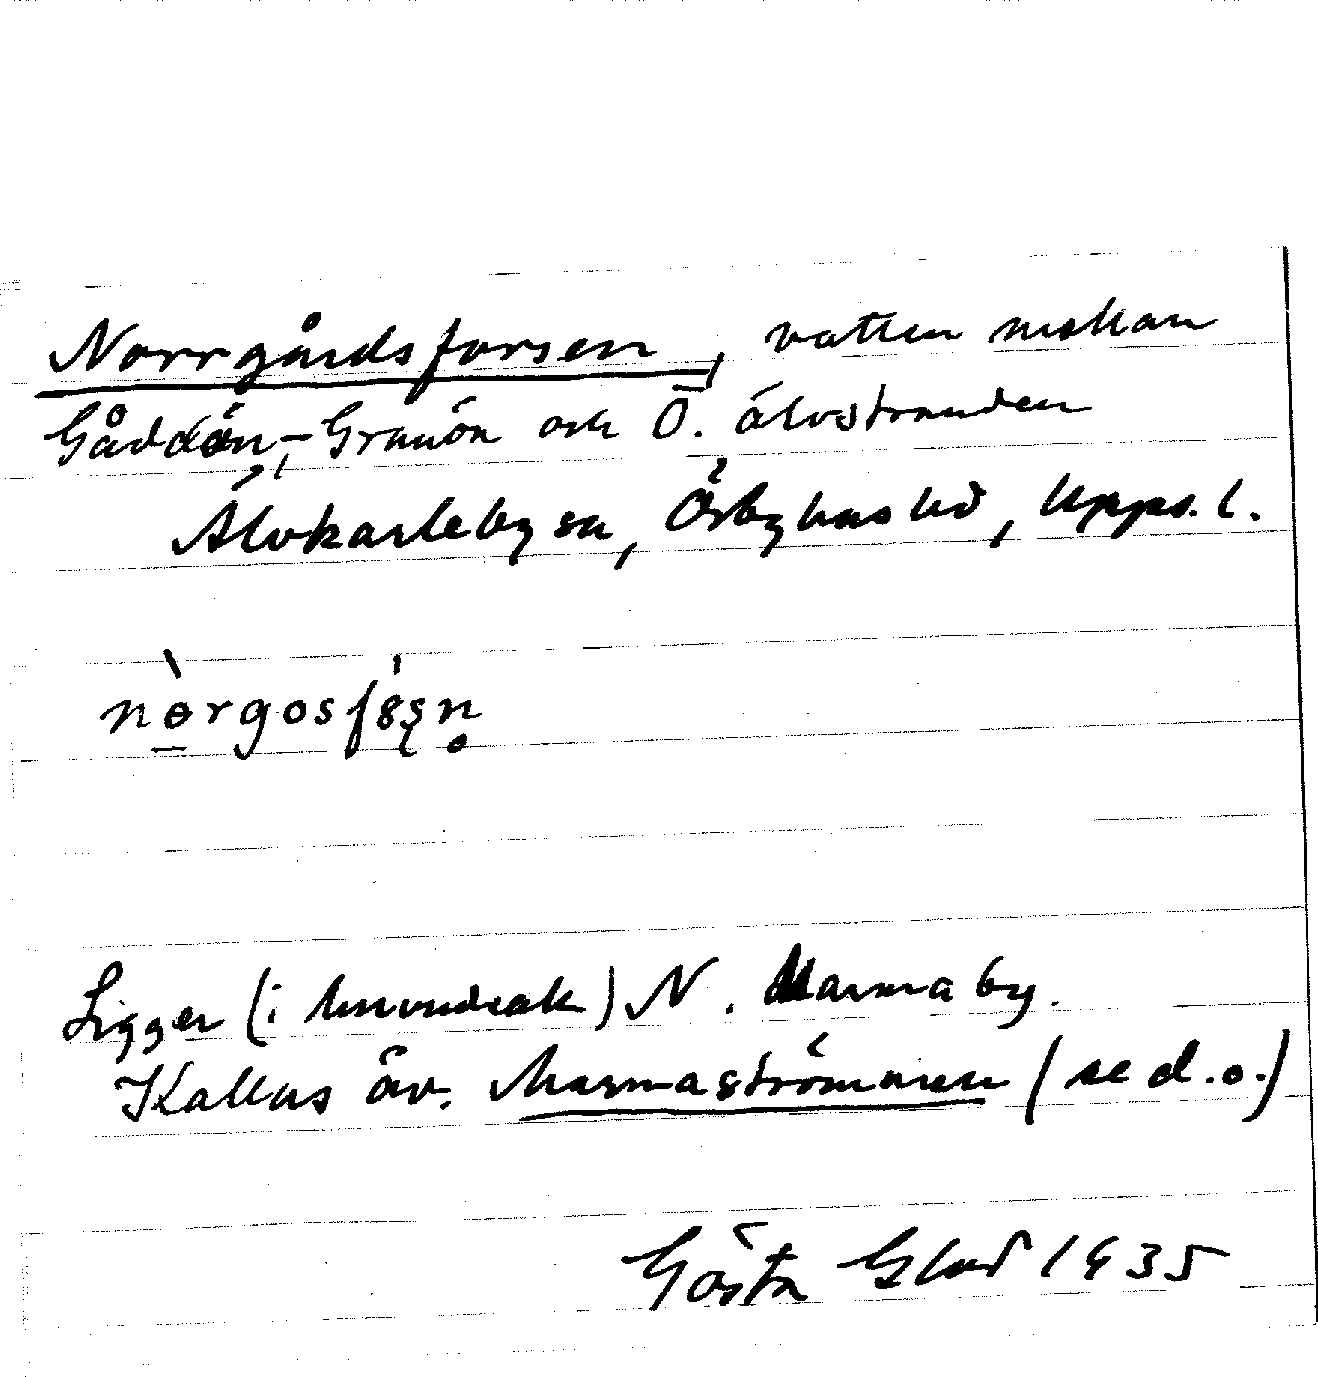 Norrgårdsforsen, vatten mellan
Gåddön, - Granön och Ö. älvstranden
Älvkarleby sn, Örbyhus hd, Upps. l.
nɵrgosfȣşn̥
Ligger (i huvudsak) N. Marma by.
Kallas äv. Marmaströmmen (se d.o.)
Gösta Glad 1935